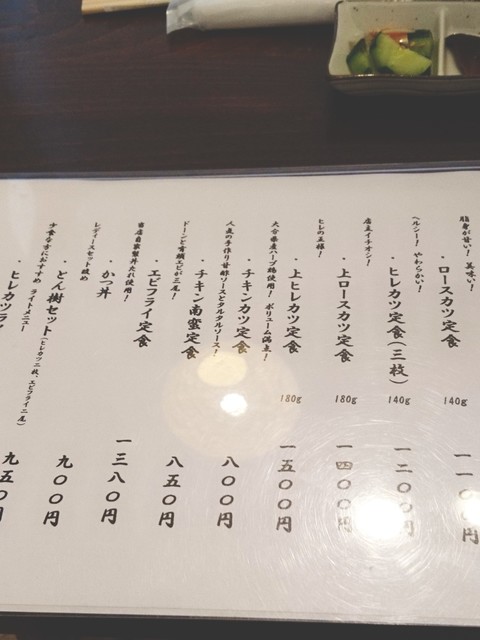 脂身が甘い！美味い！
・ロースカツ定食 140g 一一〇〇円
ヘルシー！やわらかい！
・ヒレカツ定食(三枚) 140g 一二〇〇円
店主イチオシ！
・上ロースカツ定食 180g 一四〇〇円
ヒレの王様！
・上ヒレカツ定食 180g 一五〇〇円
大分県産ハーブ鶏使用！ボリューム満点！
・チキンカツ定食 八〇〇円
人気の手作り甘酢ソースとタルタルソース！
・チキン南蛮定食 八五〇円
ドーンと有頭エビが三尾！
・エビフライ定食 一三八〇円
当店自家製丼たれ使用！
・かつ丼 九〇〇円
レディースセット改め
・とん樹セット(ヒレカツ二枚、エビフライ二尾) 九五〇円
少食な方におすすめ ライトメニュー
・ヒレカツラ